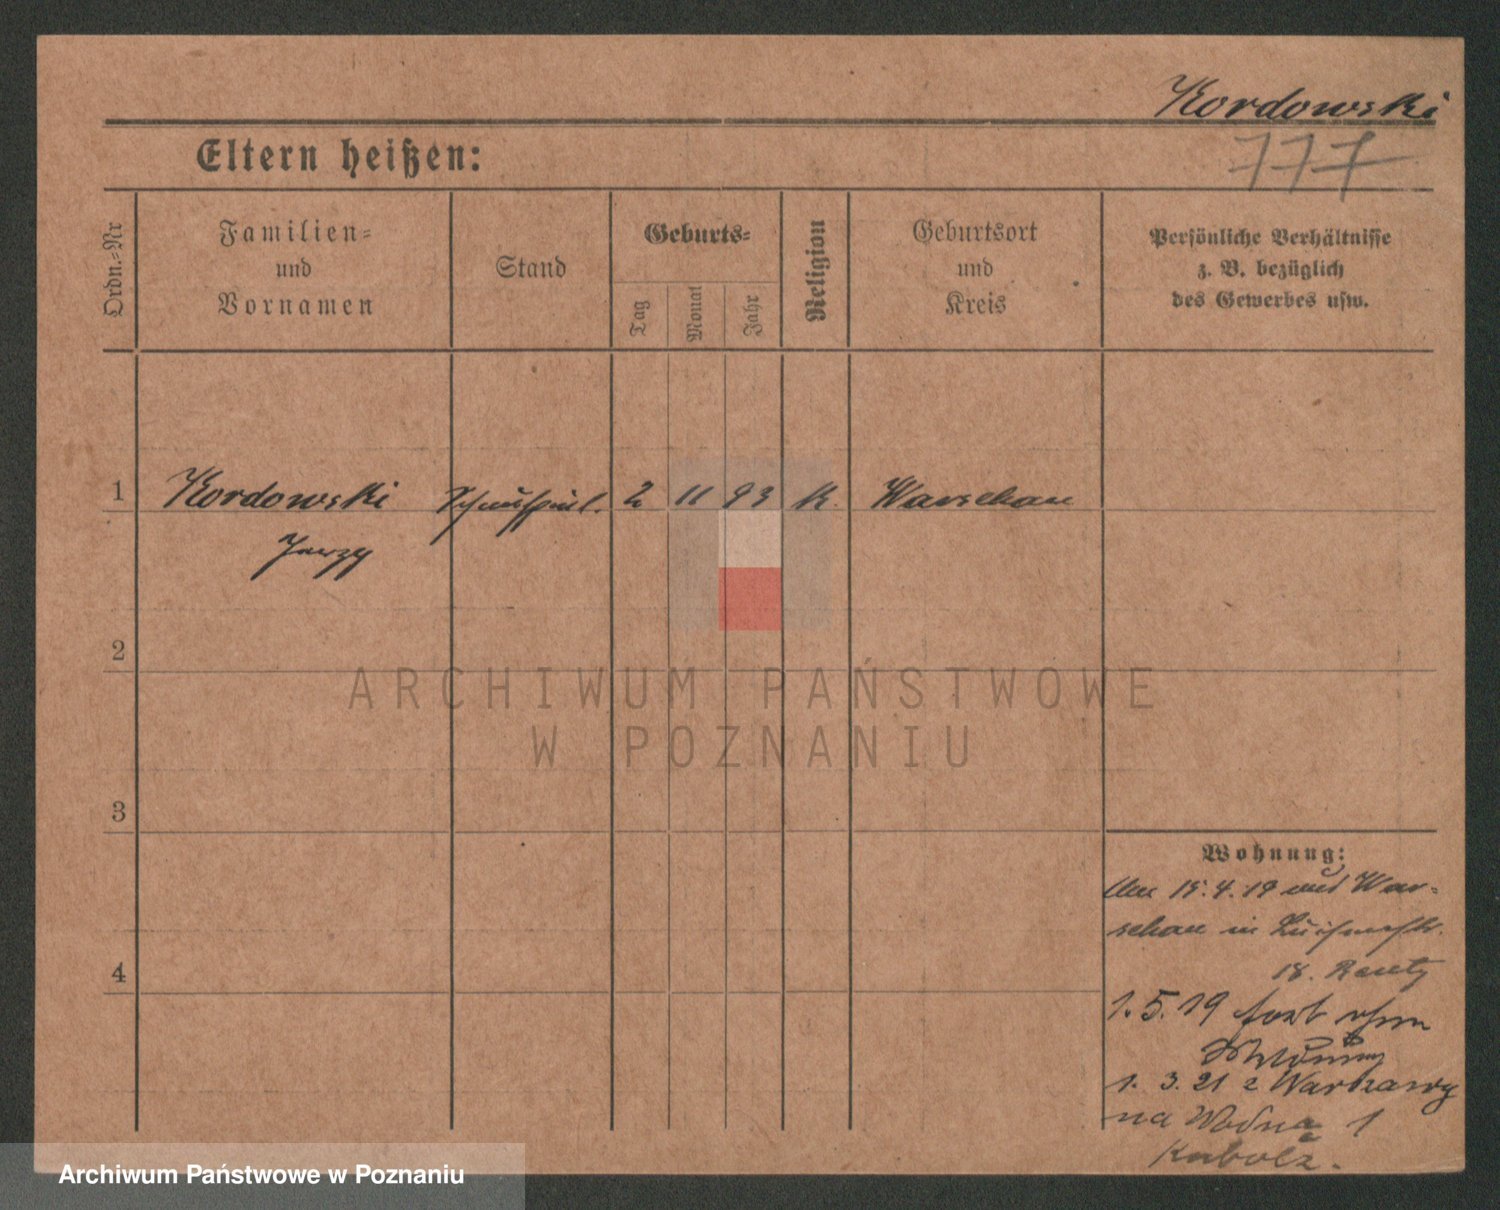 Kordowski
777
Eltern heißen:
Ordn.-Nr
Familien-
und
Vornamen
Stand
Geburts-
Tag
Monat
Jahr
Religion
Geburtsort
und
Kreis
Persönliche Verhältnisse
z. B. bezüglich
des Gewerbes usw.
1
Kordowski
Jerzy
Schauspiel.
2
11
93
K.
Warschau
2
ARCHIWUM PAŃSTWOWE
W POZNANIU
3
4
Wohnung:
15.4.19 aus War-
schau in Luisenstr.
18.
1.5.19 fort ohne
1. 3. 21 z Warszawy
na Wodną 1
Archiwum Państwowe w Poznaniu